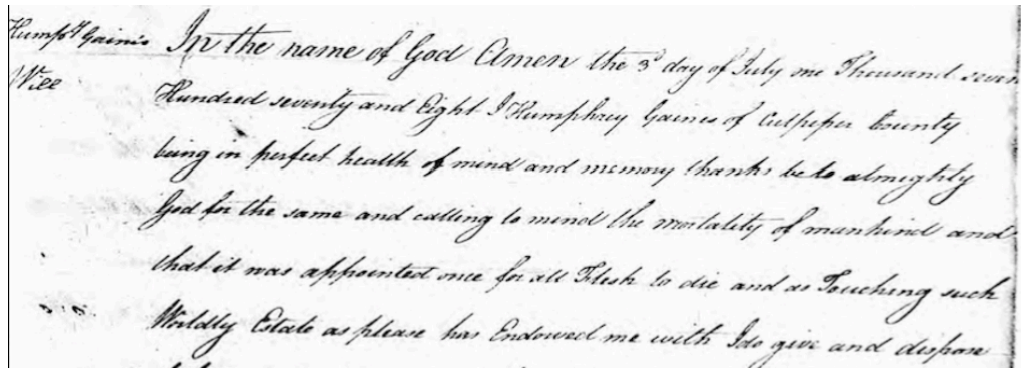 Humpy Gaines
Will
In the name of God Amen the 3d day of July one Thousand seven
Hundred seventy and Eight I Humphrey Gaines of Culpeper County
being in perfect health of mind and memory thanks be to almighty
God for the same and calling to mind the mortality of mankind and
that it was appointed once for all Flesh to die and as Touching such
Worldly Estate as please has Endowed me with I do give and dispose